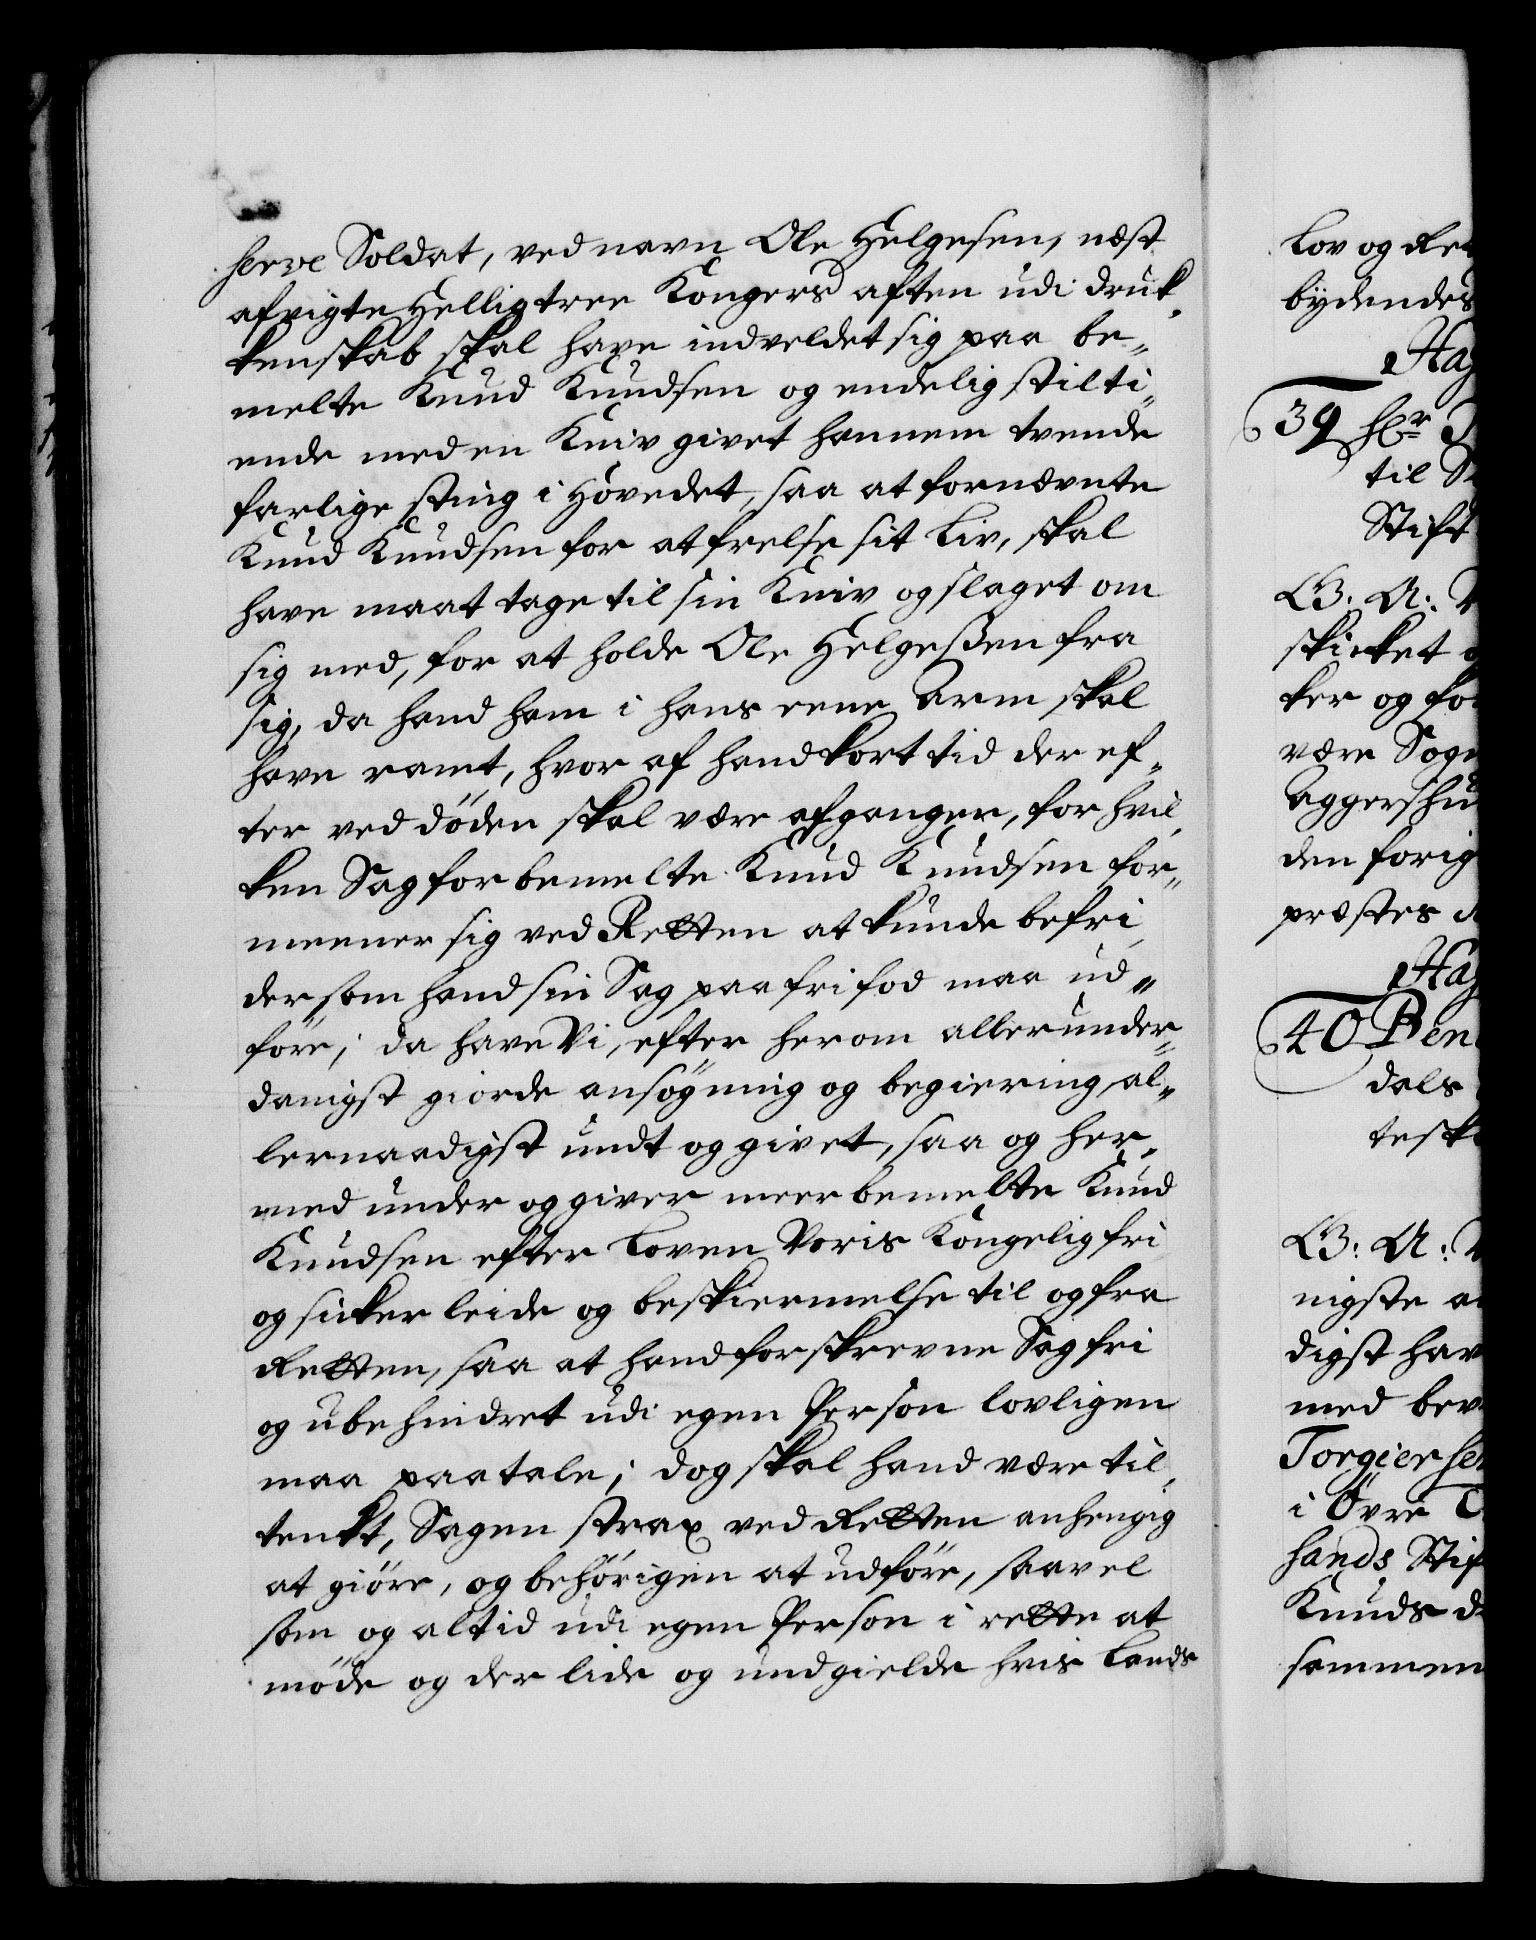 serve Soldat, ved navn Ole Helgesen, næst
afvigte Hellig tree Kongers aften udi druk„
kenskab skal have indveldet sig paa be„
melte Knud Knudsen og endelig stilti„
ende med en Kniv givet hannem tvende
farlige sting i Hovedet, saa at fornævnte
Knud Knudsen for at frelse sit Liv, skal
have maat tage til sin Kniv og slaget om
sig med, for at holde Ole Helgeßen fra
sig, da hand ham i hans eene Arm skal
have ramt, hvor af hand kort tid der ef„
ter ved döden skal være afgangen, for hvil„
ken Sag forbemelte Knud Knudsen for„
meener sig ved Retten at kunde befri,
dersom hand sin Sag paa fri fod maa ud„
före; da have Vi, efter herom allerunder„
danigst giorde ansögning og begiering, al„
lernaadigst undt og givet, saa og her„
med under og giver meerbemelte Knud
Knudsen efter Loven Voris Kongelig fri
og sicker leide og beskiermelse til og fra
Retten, saa at hand forskrevne Sag fri
og ubehindret udi egen Person lovligen
maa paatale; dog skal hand være til„
tenkt, Sagen strax ved Retten anhengig
at giöre, og behörigen at udföre, saavel
som og altid udi egen Person i rette at
möde og der lide og undgielde hvis Lands
Lov og Ret
bydendes
Ha
39 Hr
til
Stift
G: A: V
skicket
ker og for
være Sogne
Aggershu
den forig
præstes
Ha
40 Ben
dals
G: A: V
nigste a
digst hav
med bev
Torgiersen
i Övre
sands Stif
Knuds d
sammen